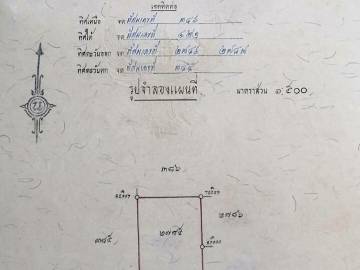 เขตติดต่อ
ทิศเหนือ จด ที่ดินเลขที่ ๓๘๖
ทิศใต้ จด ที่ดินเลขที่
ทิศตะวันออก จด ที่ดินเลขที่ ๒๗๘๖ ๒๗๘๗
ทิศตะวันตก จด ที่ดินเลขที่ ๓๘๕
น
รูปจำลองแผนที่ มาตราส่วน ๑:๕๐๐
๓๘๖
๒๗๘๖
๓๘๕
๒๗๘๕